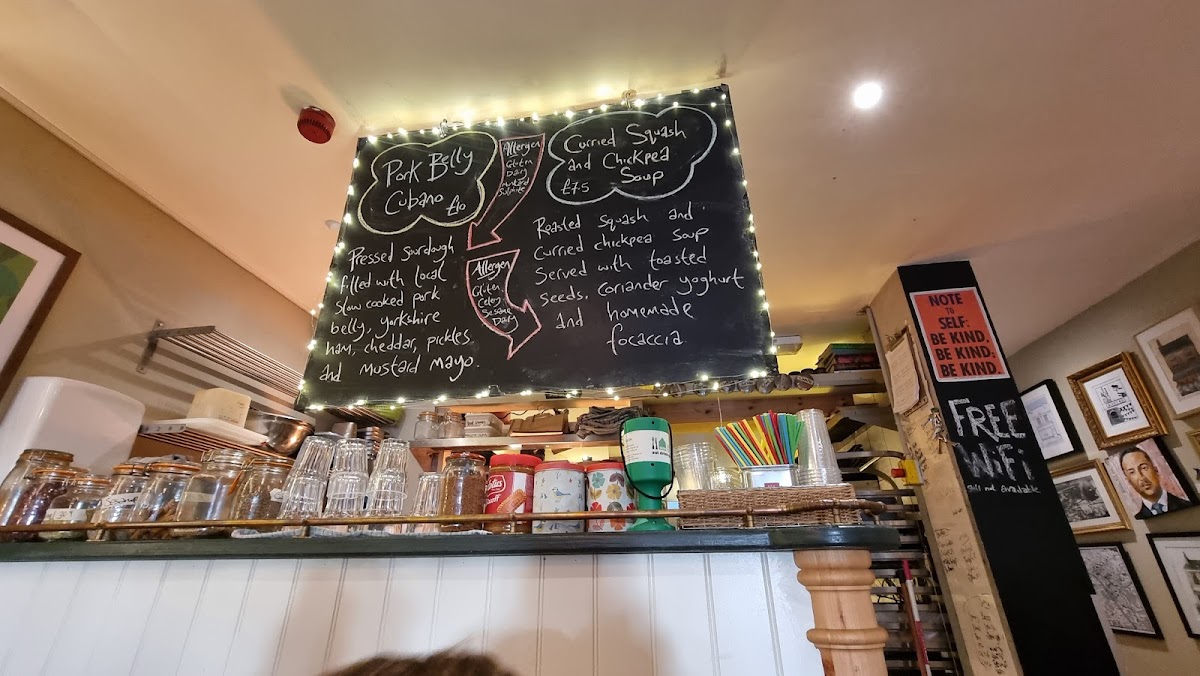 Pork Belly
Cubano £10
Pressed sourdough
filled with local
slow cooked pork
belly, yorkshire
ham, cheddar, pickles
and mustard mayo.
Allergen
Gluten
Dairy
Mustard
Sulphite
Allergen
Gluten
Celery
Sesame
Dairy
Curried Squash
and Chickpea
£7.5 Soup
Roasted squash and
curried chickpea soup
served with toasted
seeds, coriander yoghurt
and homemade
focaccia
NOTE
TO
SELF:
BE KIND,
BE KIND,
BE KIND.
FREE
WiFi
Still not available
Lotus